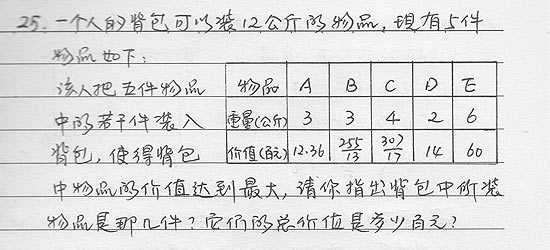 25. 一个人的背包可以装12公斤的物品, 现有5件
物品如下:
该人把五件物品 物品 A B C D E
中的若干件装入 重量(公斤) 3 3 4 2 6
背包, 使得背包 价值(百元) 12.36 255/13 307/17 14 60
中物品的价值达到最大, 请你指出背包中所装
物品是那几件? 它们的总价值是多少百元?